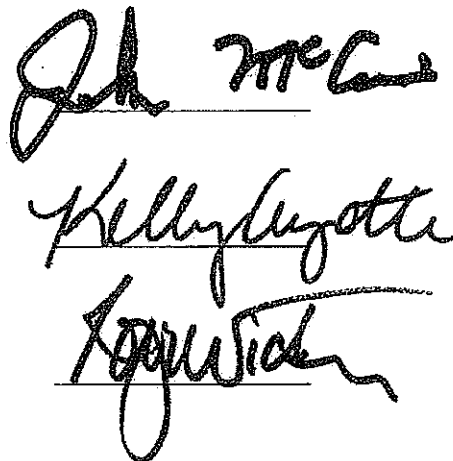 John McCain
Kelly Ayotte
Roger Wicker